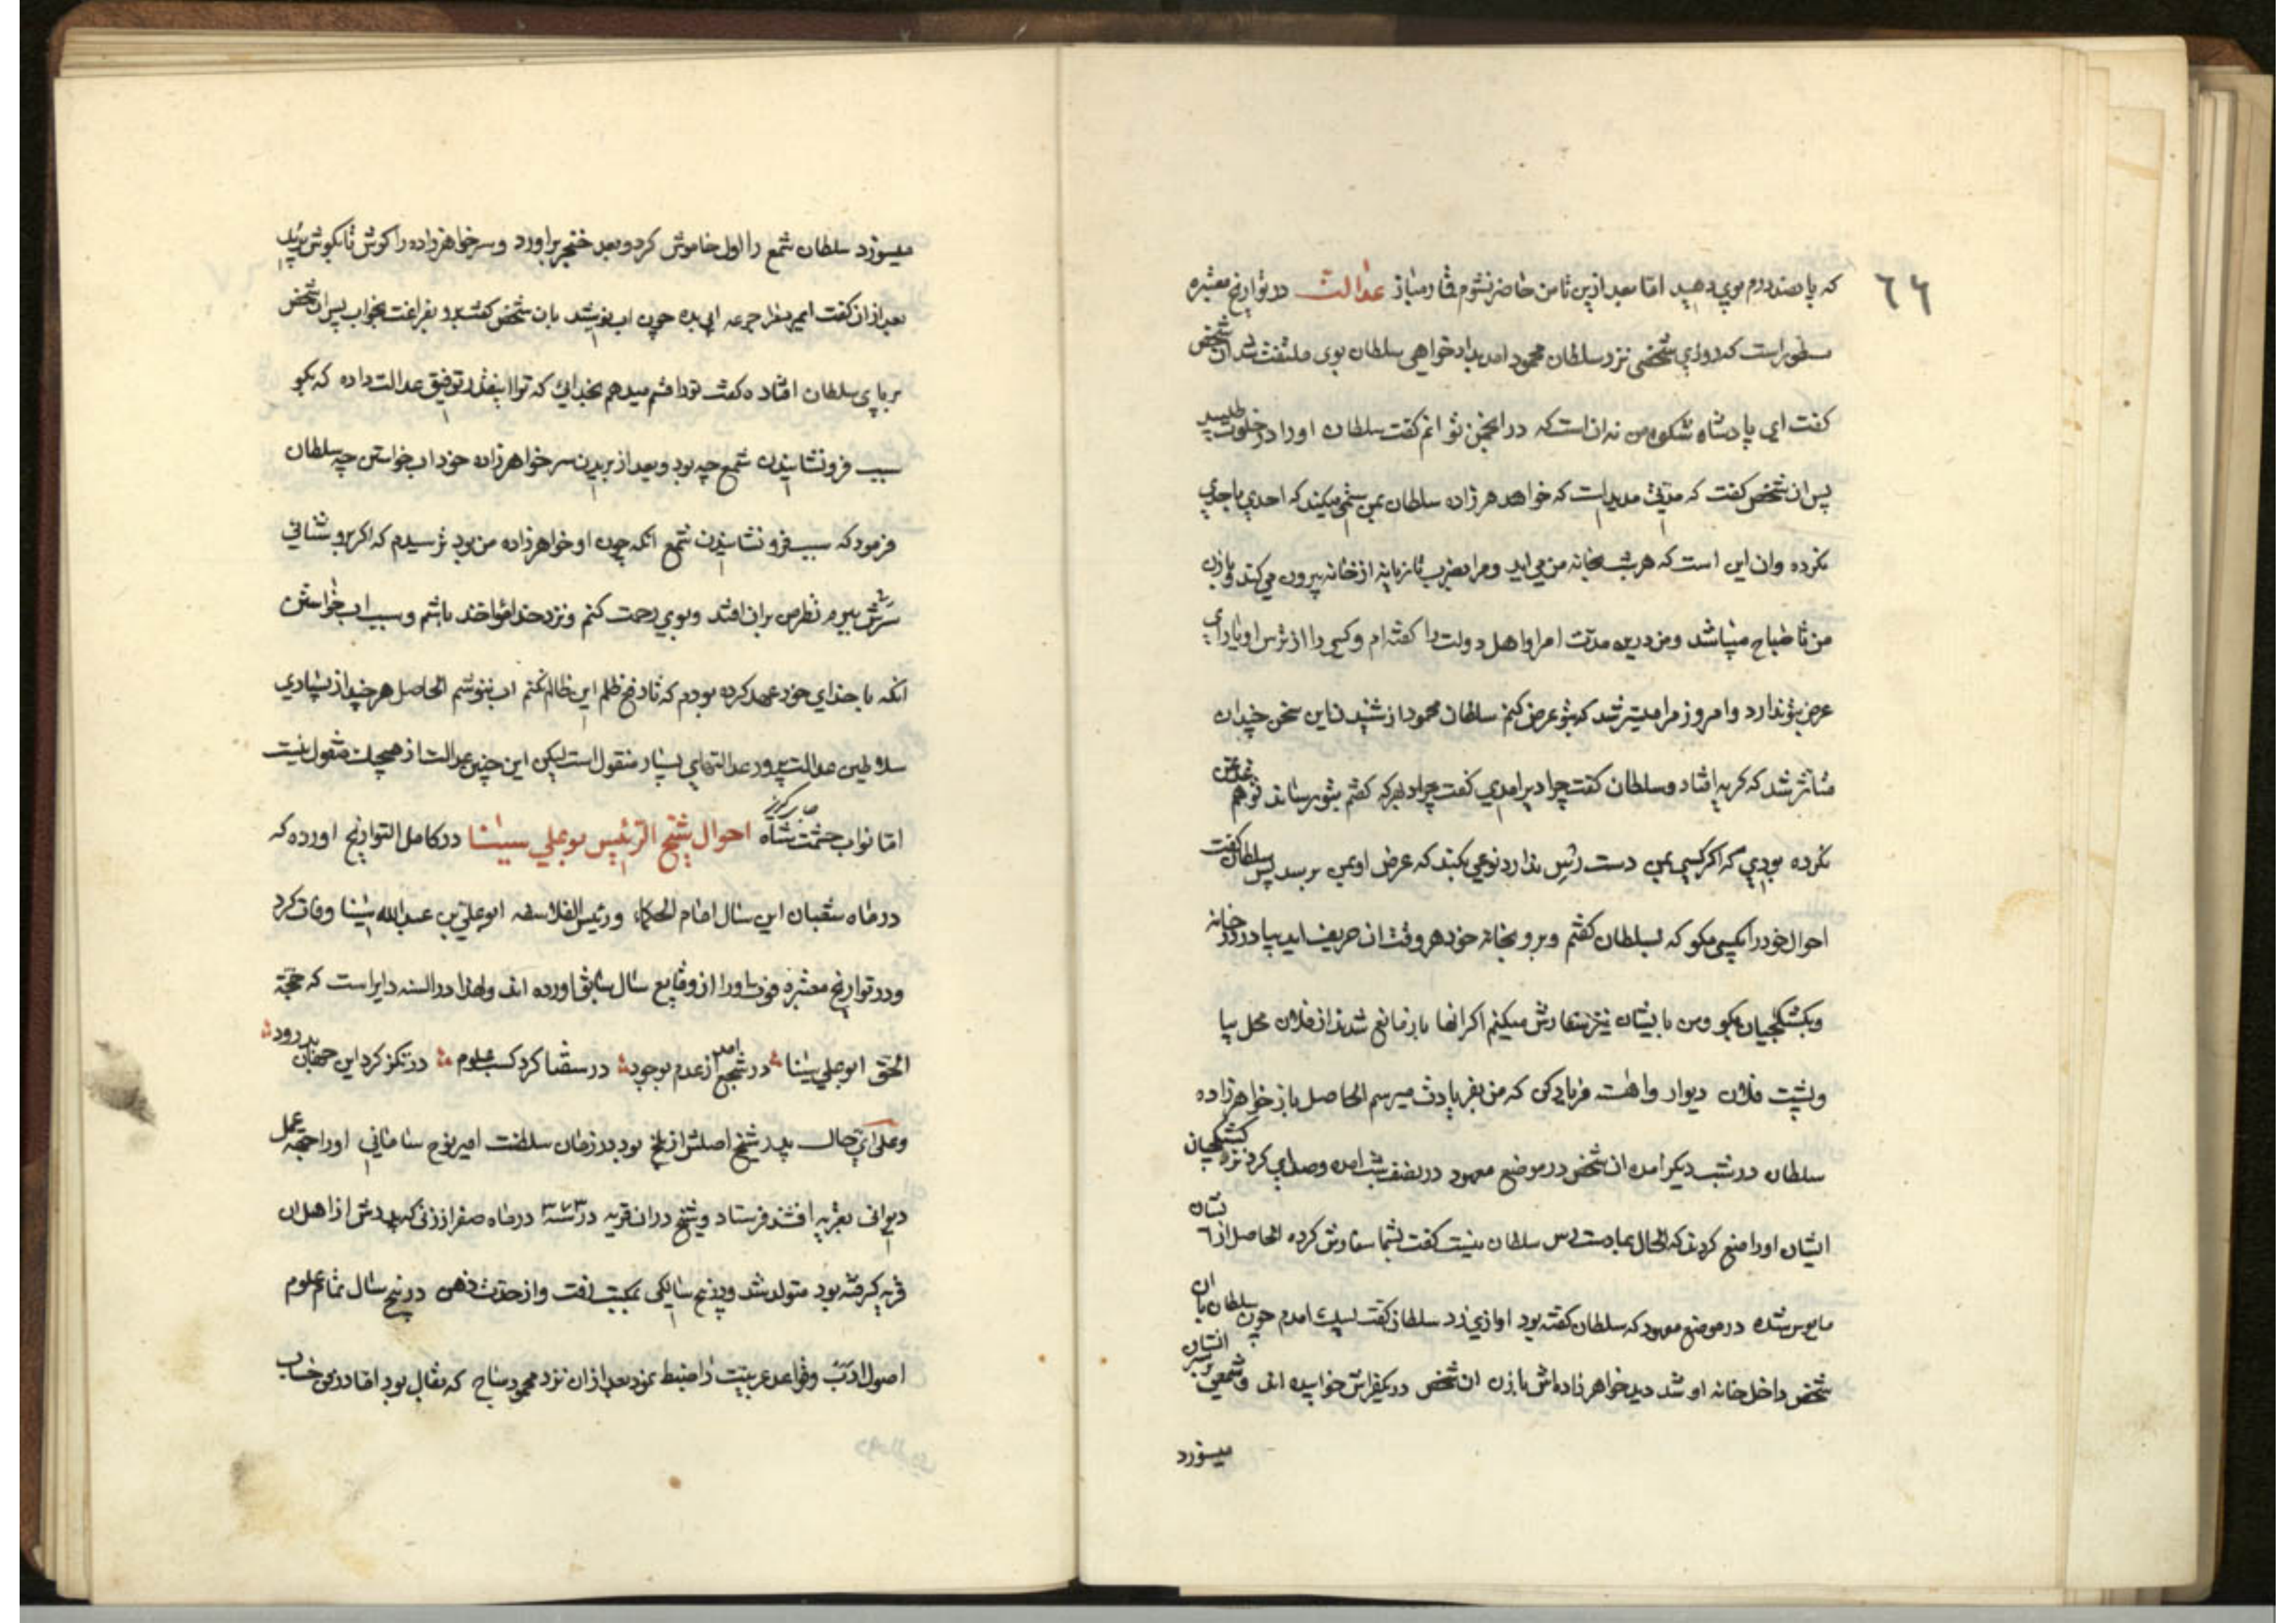 ٦٦
که پانصد درم بوی دهید اما بعد ازین تا من حاضر نشوم قمار مباز عدالت در تواریخ معتبره
مسطور است که روزی شخصی نزد سلطان محمود امد بدادخواهی سلطان بوی ملتفت شد ان شخص
کفت ای پادشاه شکوه من نه ان است که در انجمن توانم کفت سلطان اورا در خلوت طلبید
پس ان شخص کفت که مدتی مدید است که خواهر زاده سلطان بمن ستمی میکند که احدی باحدی
نکرده وان این است که هر شب بخانه من می اید ومرا بضرب تازیانه از خانه بیرون می کند وبا زن
من تا صباح میباشد ومن درین مدت امرا واهل دولت را کفته ام وکسی را از ترس او یارای
عرض بتو ندارد وامروز مرا میسر شد که بتو عرض کنم سلطان محمود از شنیدن این سخن چندان
متاثر شد که کریه افتاد وسلطان کفت چرا دیر امدی کفت چرا دیر که کفتم بتو برساند تو هم
نکرده بودی که اکر کسی بمن دست رس ندارد نوعی بکند که عرض او بمن برسد پس سلطان کفت
احوال خود را بکسی مکو که بسلطان کفتم وبرو بخانه خود هر وقت ان حریف اید بیا در در خانه
وبکشکچیان بکو ومن بایشان نیز سفارش میکنم اکر انها باز مانع شدند از فلان محل بیا
وپشت فلان دیوار واهسته فریاد کن که من بفریادت میرسم الحاصل باز خواهر زاده
سلطان در شب دیکر امده ان شخص در موضع معهود در نصف شب امده وصدایی کرد نزد کشکچیان
ایشان اورا منع کردند که الحال بما دست رس سلطان نیست کفت بشما سفارش کرده الحاصل از ایشان
مایوس شده در موضع معهود که سلطان کفته بود اوازی زد سلطان کفت لبیک امدم چون سلطان با ان
شخص داخل خانه او شد دید خواهر زاده اش با زن ان شخص در یکفراش خوابیده اند وشمعی بر سر ایشان
میسوزد
میسوزد سلطان شمع را اول خاموش کرد وبعد خنجر براورد وسر خواهر زاده را کوش تا بکوش برید
بعد از ان کفت جرعه ابی بده چون اب نوشید بان شخص کفت برو بفراغت بخواب پس ان شخص
بر پای سلطان افتاده کفت ترا قسم میدهم بخدایی که ترا اینقدر توفیق عدالت داده که بکو
سبب فرو نشانیدن شمع چه بود وبعد از بریدن سر خواهر زاده خود اب خواستن چه سلطان
فرمود که سبب فرو نشانیدن شمع انکه چون او خواهر زاده من بود ترسیدم که اکر بروشنائی
سرش ببرم نظرم بران افتد وبوی رحمت کنم ونزد خدا مؤاخذ باشم وسبب اب خواستن
انکه با خدای خود عهد کرده بودم که تا دفع ظلم این ظالم نکنم اب ننوشم الحاصل هر چند از بسیاری
سلاطین عدالت پرور عدالتهای بسیار منقول است لیکن این چنین عدالت از هیچیک منقول نیست
اما نواب حشمت شاه احوال شیخ الرئیس بوعلی سینا در کامل التواریخ اورده که
در ماه شعبان این سال امام الحکما ورئیس الفلاسفه ابو علی بن عبدالله سینا وفات کرد
ودر تواریخ معتبره فوت اورا از وقایع سال سابق اورده اند ولهذا در السنه دایر است که حجة
الحق ابو علی سینا در شجع امد از عدم بوجود در شصا کرد کسب علوم در تکز کرد این جهان بدرود
وعلی ای حال پدر شیخ اصلش از بلخ بود در زمان سلطنت امیر نوح سامانی اورا جهة عمل
دیوانی بقریه افشنه فرستاد وشیخ در ان قریه در سنه ۳۷۳ در ماه صفر از زنی که پدرش از اهل ان
قریه کرفته بود متولد شد ودر پنج سالکی بمکتب رفت واز حدت ذهن در پنج سال تمام علوم
اصول ادب وقواعد عربیت را ضبط نمود بعد از ان نزد محمود مساح که بقال بود اما در فن حساب